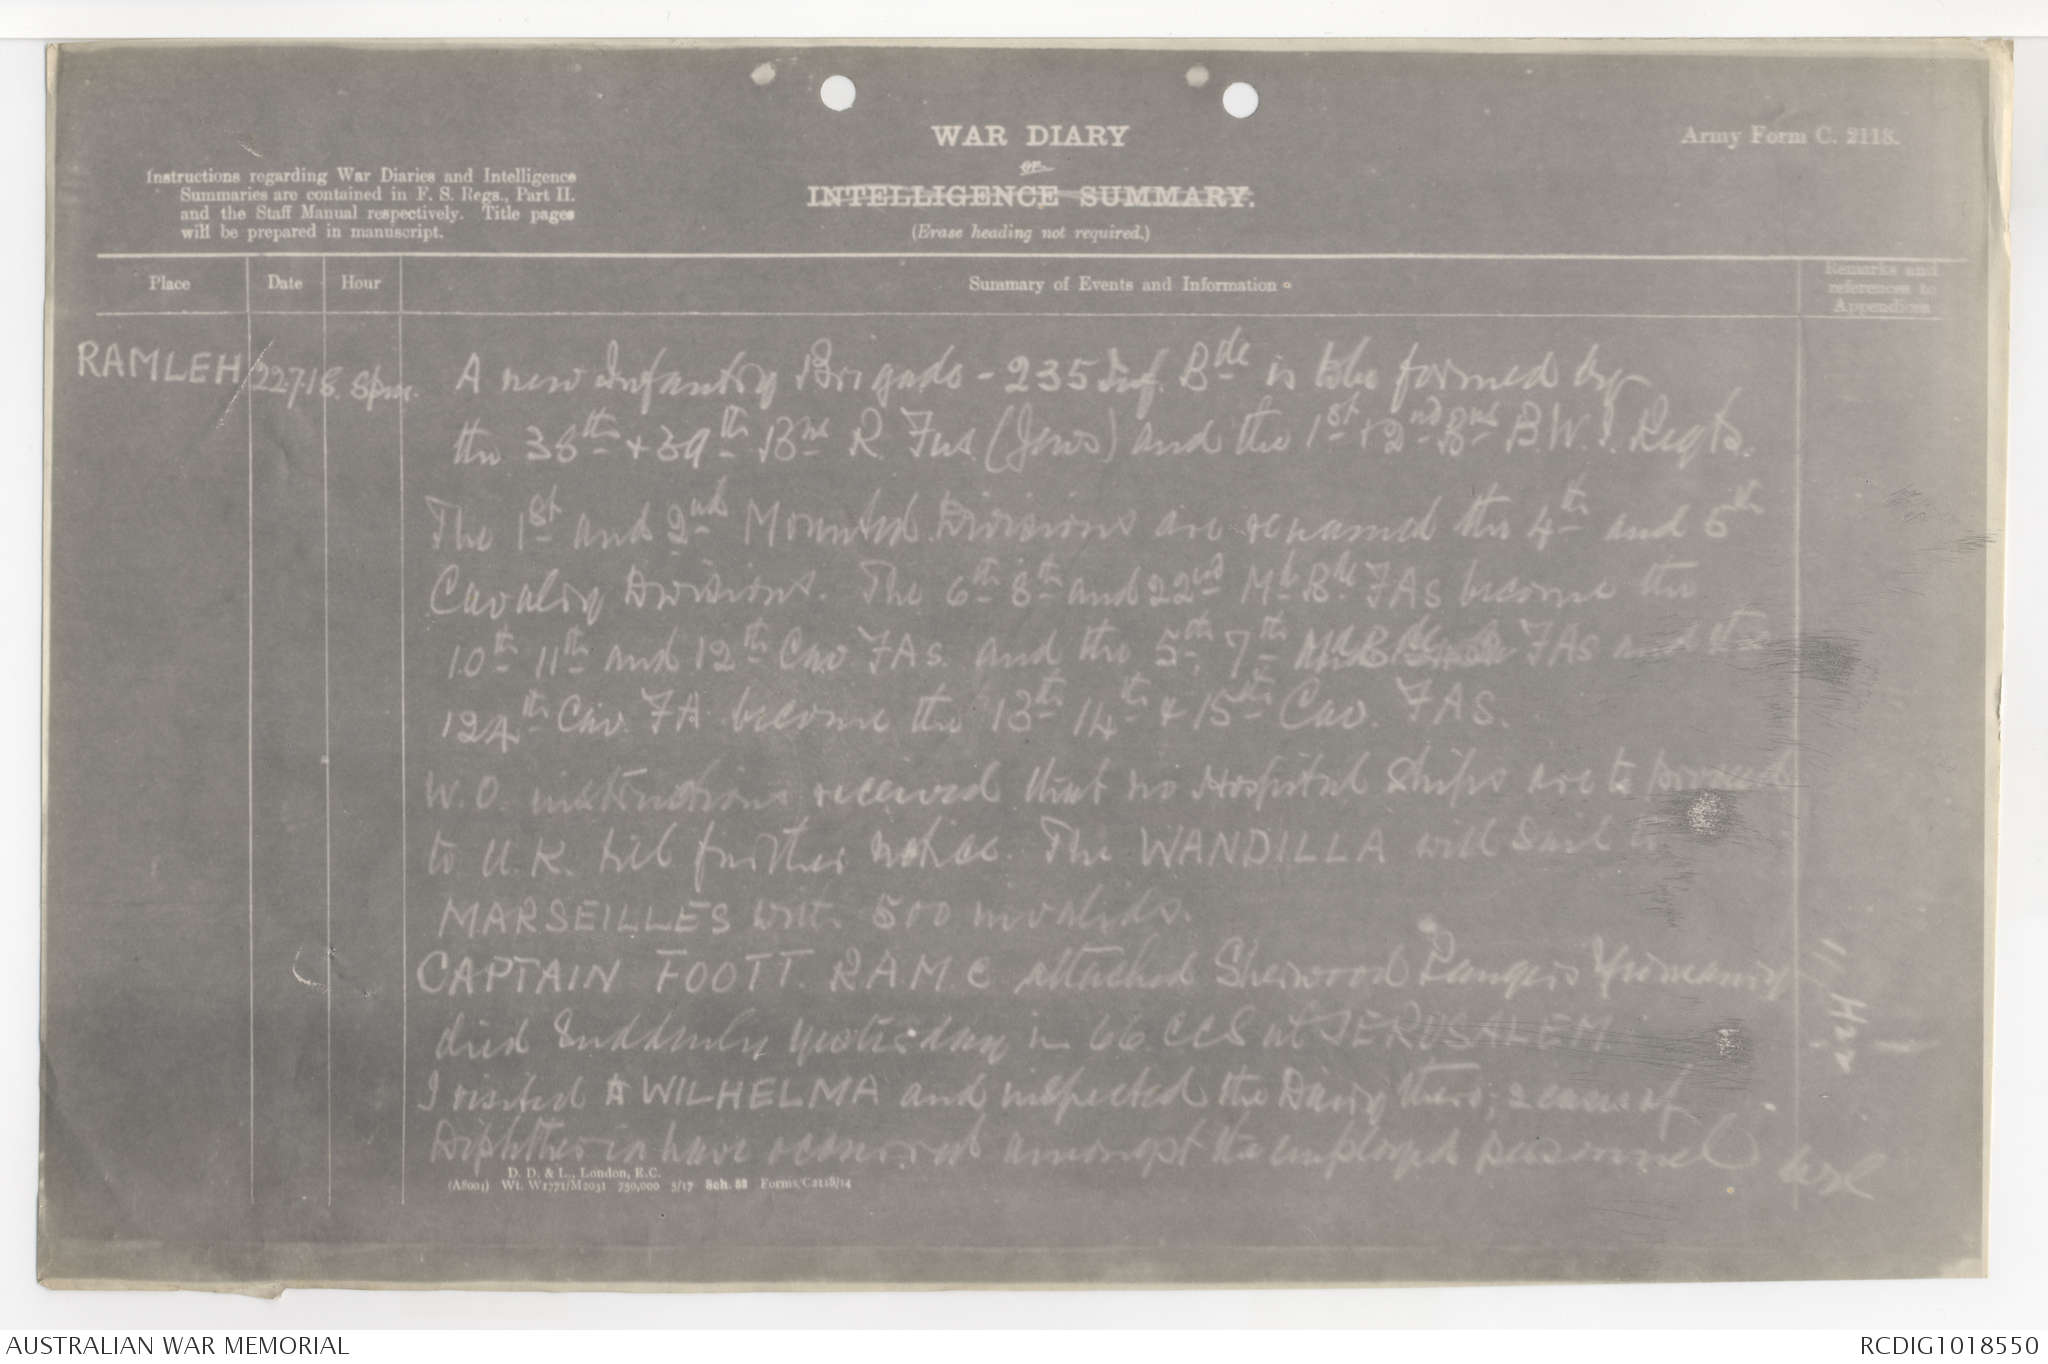 WAR DIARY
or
INTELLIGENCE SUMMARY.
(Erase heading not required.)
Army Form C. 2118.
Instructions regarding War Diaries and Intelligence
Summaries are contained in F. S. Regs., Part II.
and the Staff Manual respectively. Title pages
will be prepared in manuscript.
Place Date Hour Summary of Events and Information Remarks and references to Appendices
RAMLEH 22718. 8pm. A new Infantry Brigade - 235 Inf. Bde is to be formed by
the 38th + 39th Bns R. Fus. (Jews) and the 1st + 2nd Bns B.W.I. Regts.
The 1st and 2nd Mounted Divisions are renamed the 4th and 5th
Cavalry Divisions. The 6th 8th and 22nd Mtd Bde FAs become the
10th 11th and 12th Cav FAs. and the 5th, 7th FAs and the
124th Cav. FA become the 13th 14th + 15th Cav. FAS.
W.O. instructions received that no Hospital Ships are to proceed
to U.K. till further notice. The WANDILLA will sail to
MARSEILLES with 500 invalids.
CAPTAIN FOOTT. R.A.M.C. attached Sherwood Rangers Yeomanry
died suddenly yesterday in 66 CCS at JERUSALEM
I visited WILHELMA and inspected the Dairy there; 2 cases of
Diphtheria have occurred amongst the employed personnel
D. D. & L., London, E.C.
(A8001) Wt. W1771/M2031 750,000 5/17 Sch. 52 Forms/C2118/14
AUSTRALIAN WAR MEMORIAL
RCDIG1018550